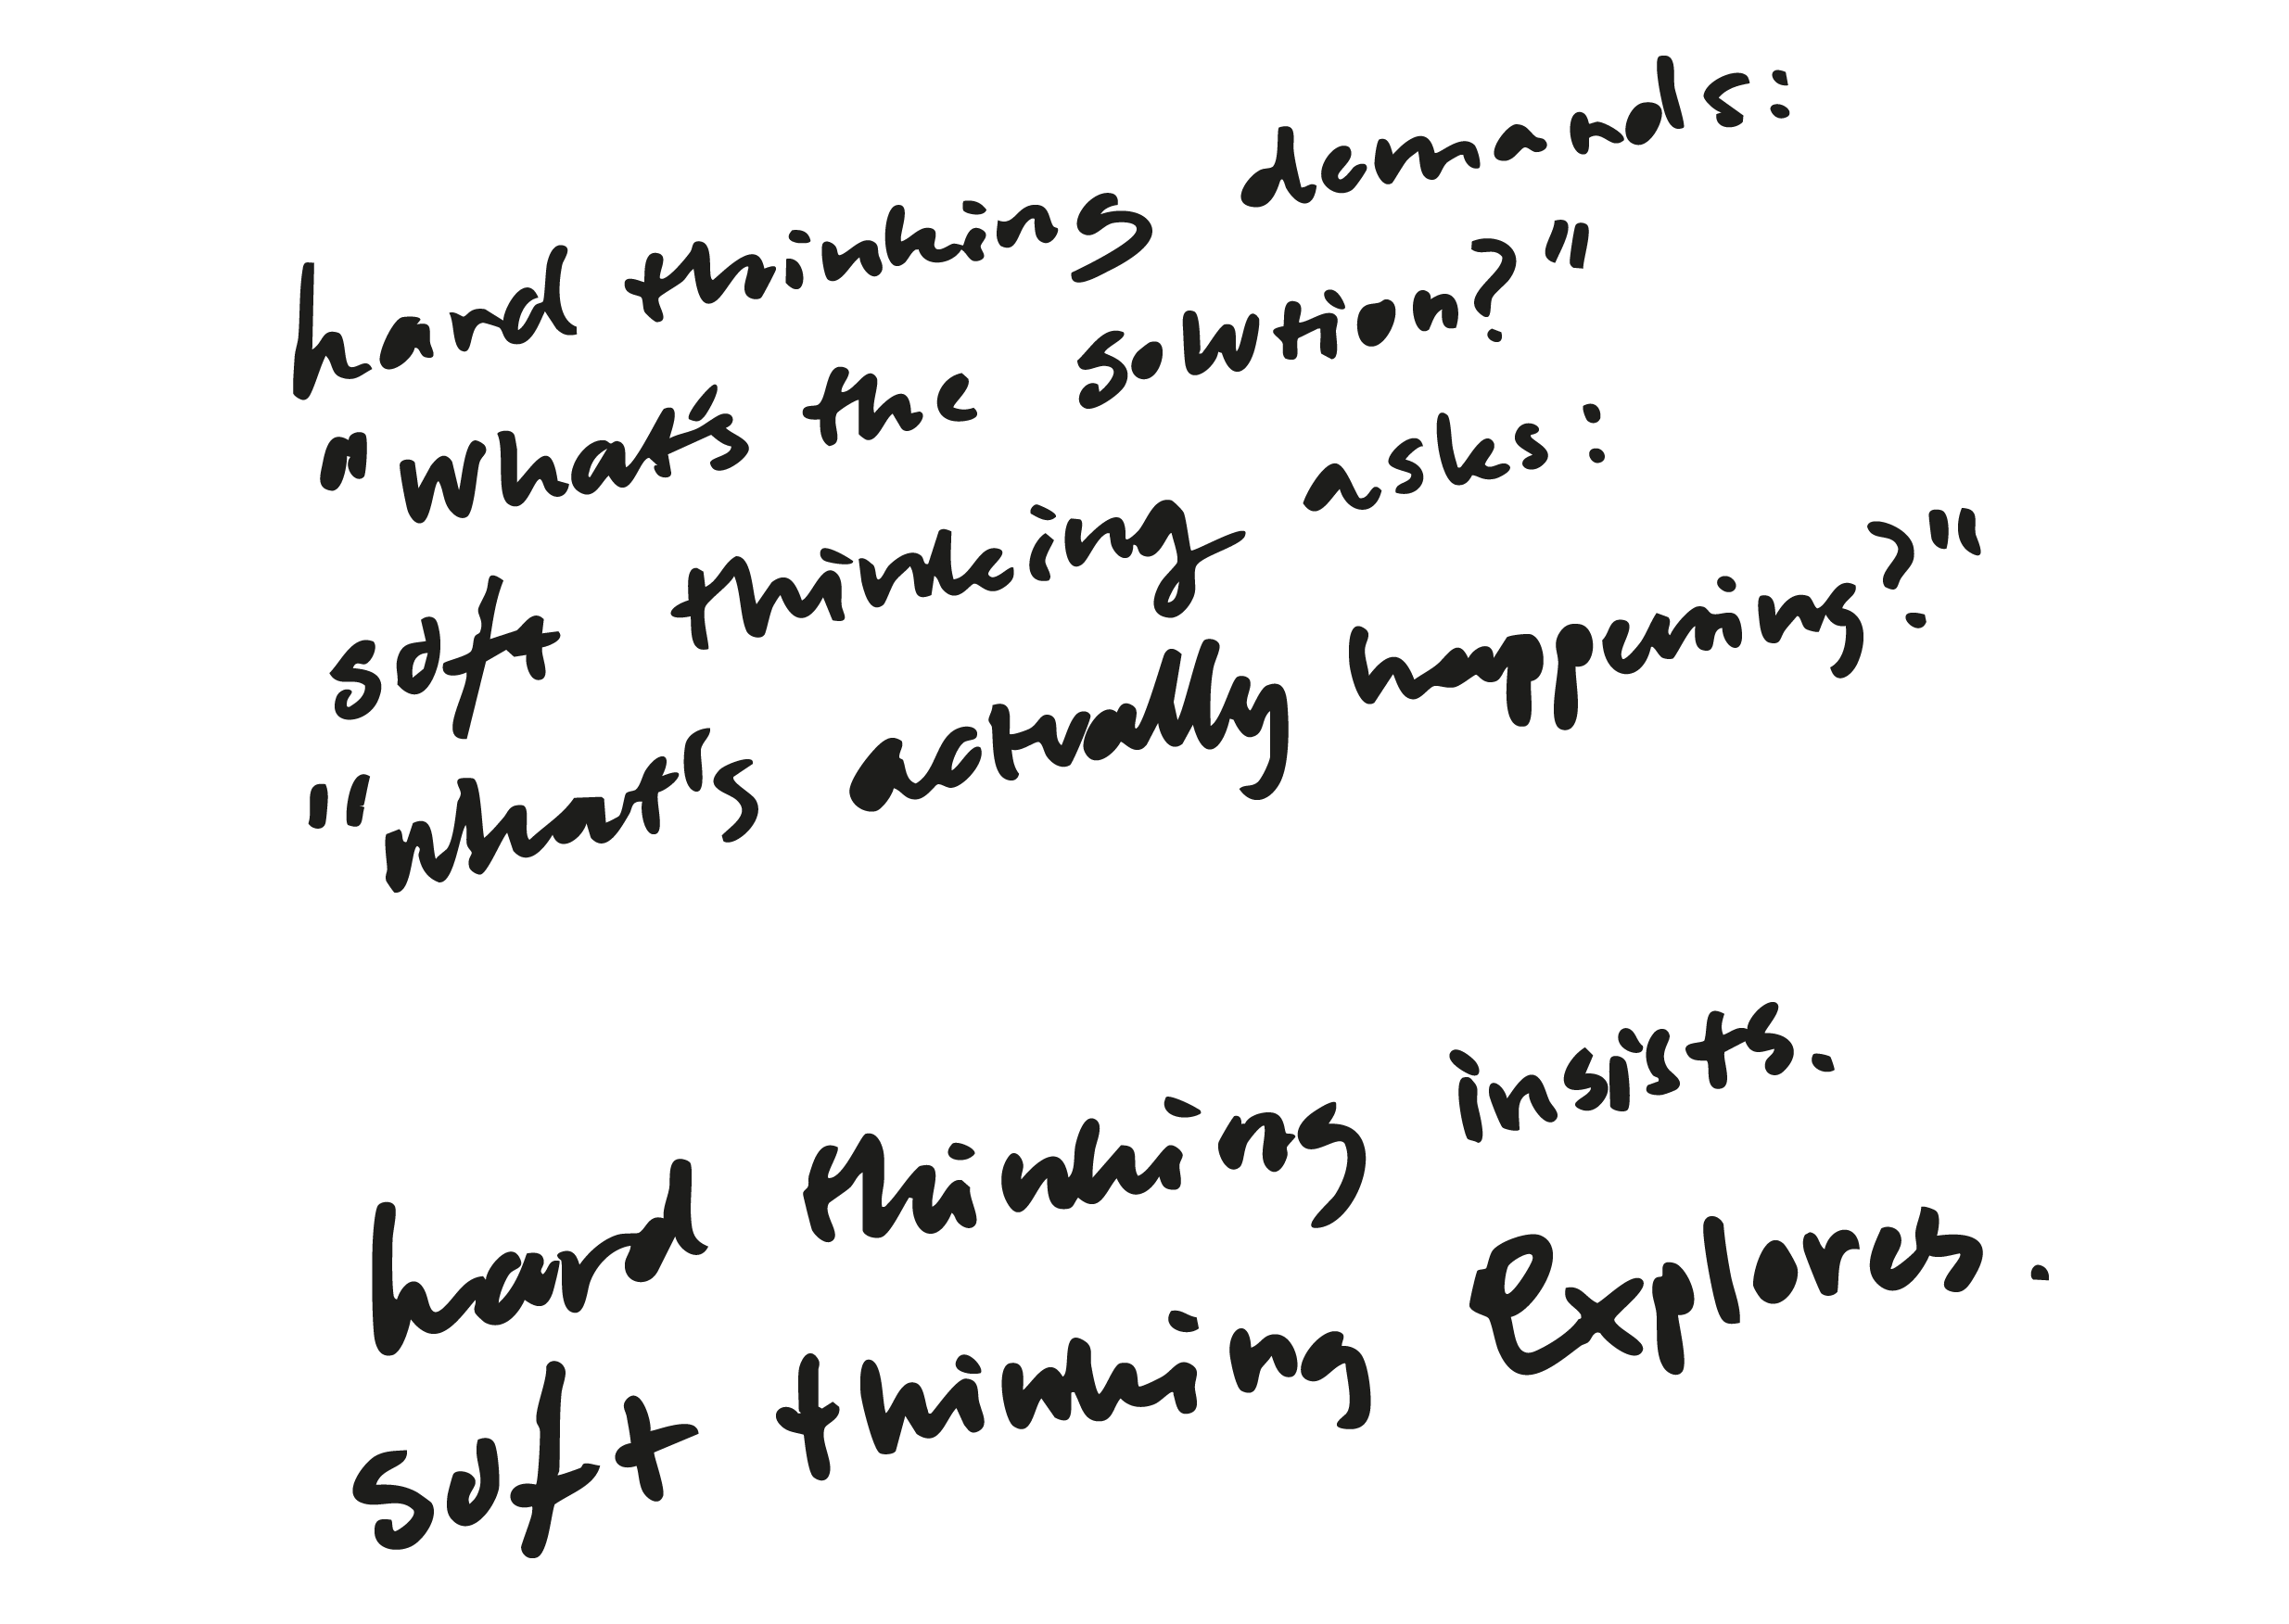 hard thinking demands:
"What's the solution?"
soft thinking asks:
"what's actually happening?"
hard thinking insists.
soft thinking explores.